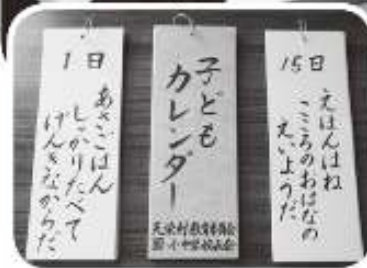 1日
あさごはん
しっかりたべて
げんきなからだ
子ども
カレンダー
天栄村教育委員会
園・小中学校長会
15日
えほんはね
こころのおはなの
えいようだ